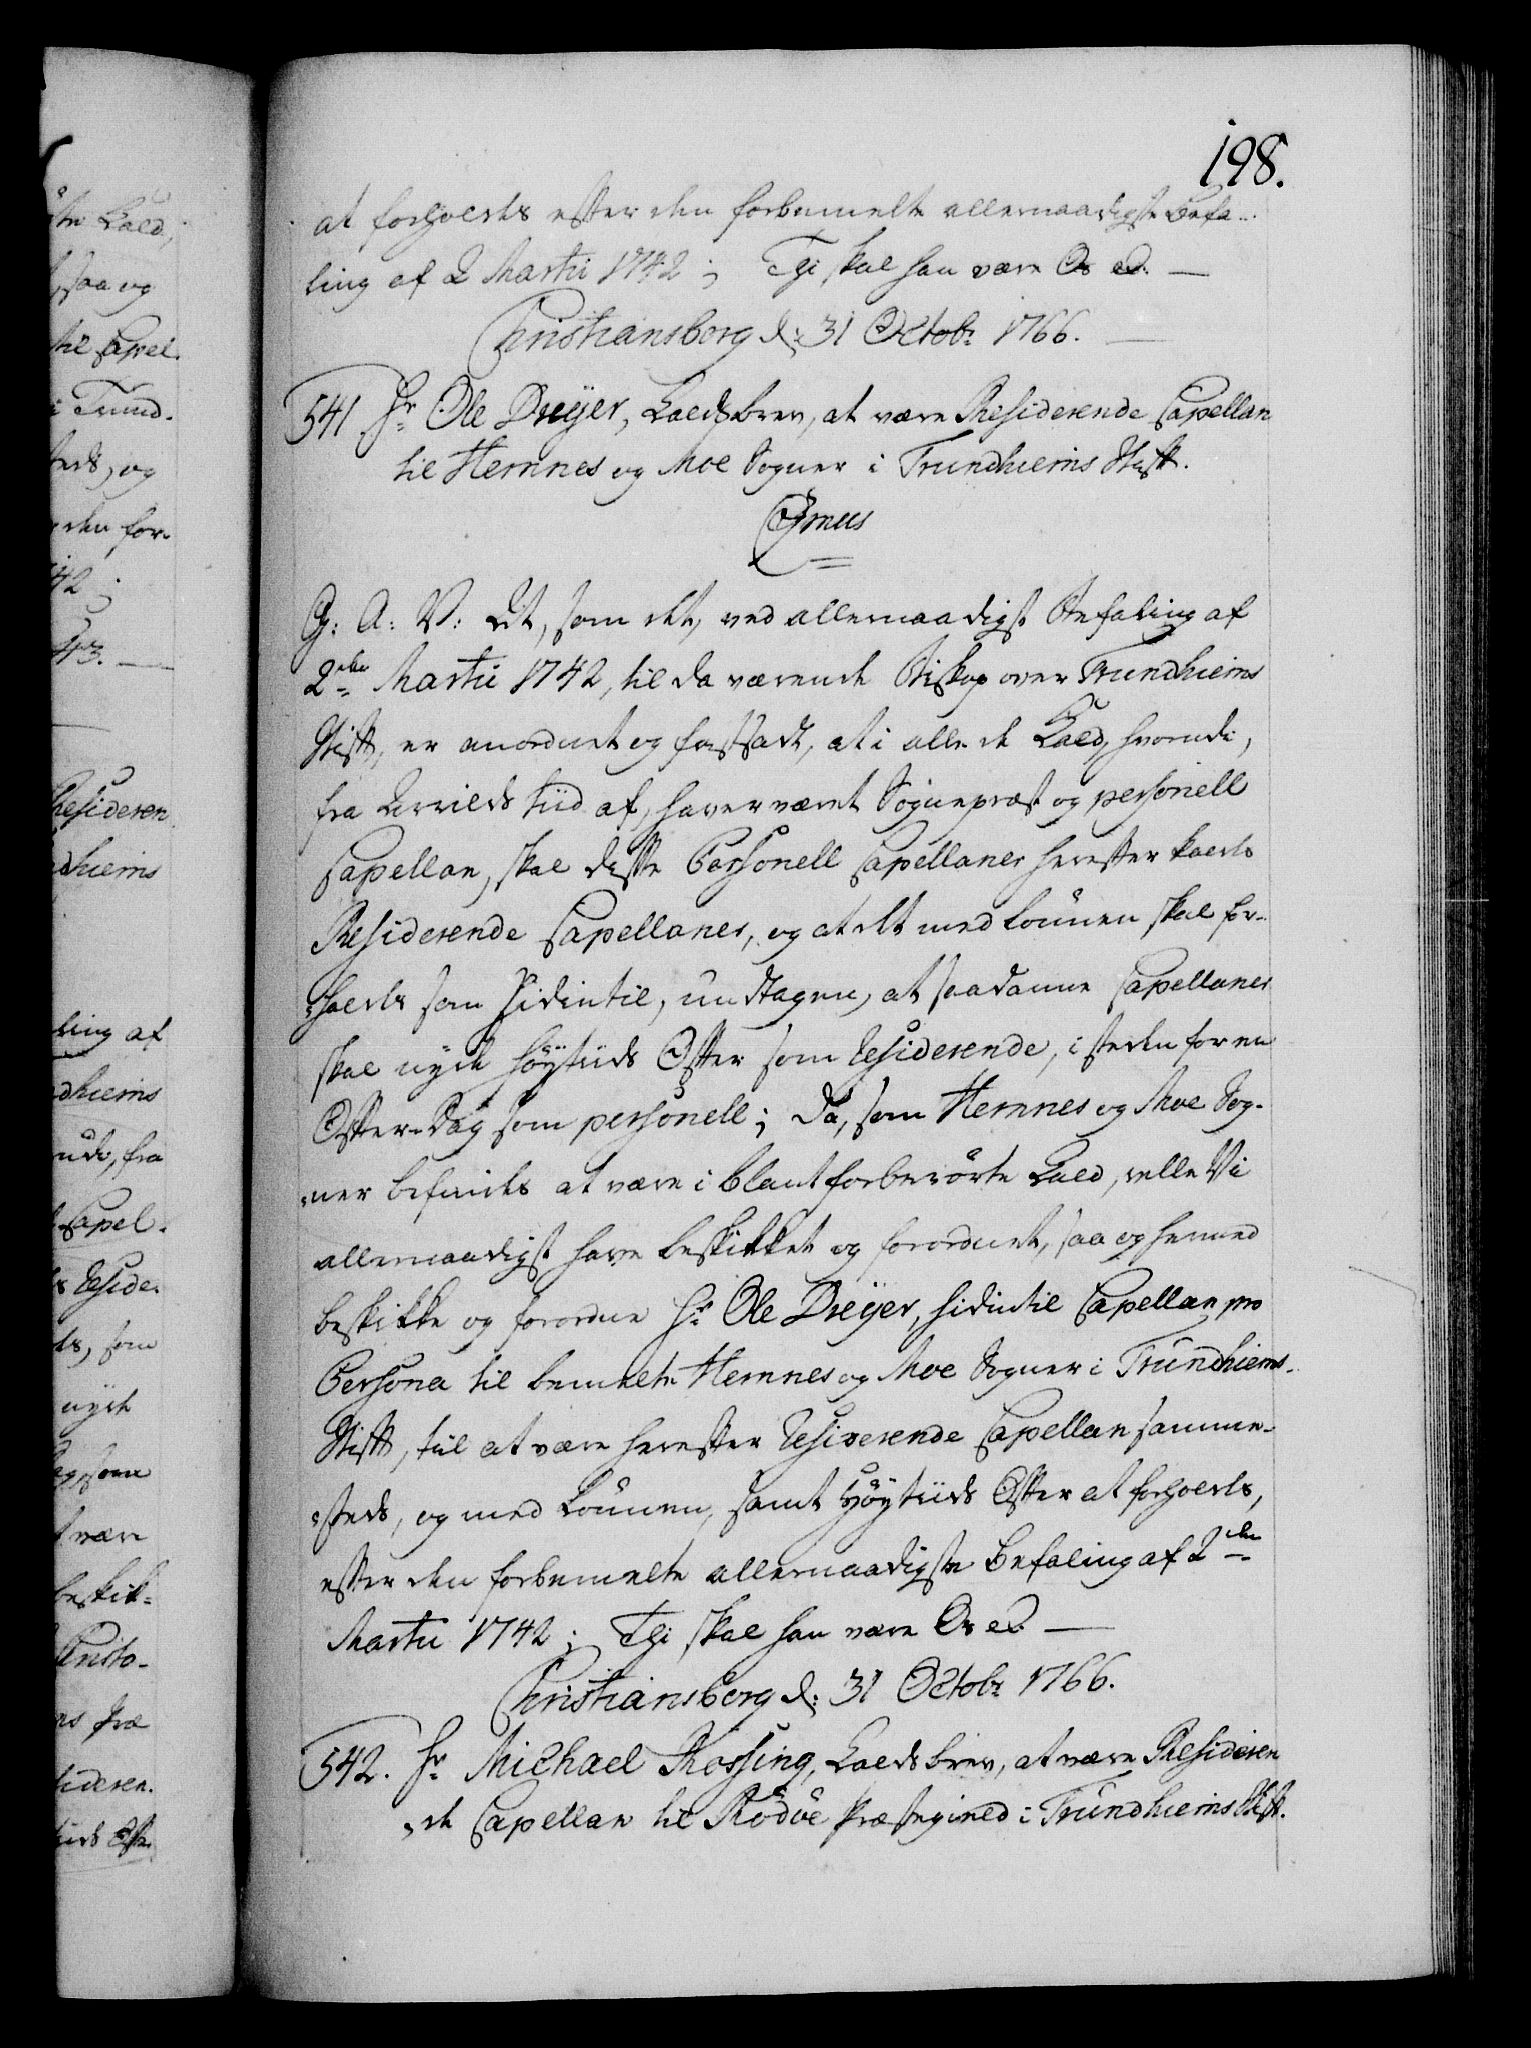 198.
at forholdes efter den forbemelte allernaadigste Befa-
ling af 2 Martii 1742; Thi skal han være Os etc.
Christiansborg d: 31 Octobr 1766.
541 Hr Ole Dreÿer, Kaldsbrev, at være Residerende Capellan
til Hemnes og Moe Sogner i Trundhiems Stift.
C7mus
G: A: V: At, som det, ved allernaadigst Befaling af
2den Martii 1742, til da værende Biskop over Trundhiems
Stift, er anordnet og fastsadt, at i alle de Kald, hvorudi,
fra Arrilds tiid af, haver været Sognepræst og personell
Capellan, skal disse Personell Capellaner herefter kaldes
Residerende Capellaner, og at det med Lønnen skal for-
holdes som hidintil, undtagen, at saadanne Capellaner
skal nyde Høytiids Offer som Residerende, i steden for en
Offer-Dag som personell; Da, som Hemnes og Moe Sog-
ner befindes at være i blant forberørte Kald, ville Vi
allernaadigst have beskikket og forordnet, saa og hermed
beskikke og forordne Hr Ole Dreÿer, hidintil Capellan pro
Persona til bemelte Hemnes og Moe Sogner i Trundhiems
Stift, till at være herefter Residerende Capellan samme-
steds, og med Lønnen, samt Høytiids Offer at forholdes,
efter den forbemelte allernaadigste Befaling af 2den
Martii 1742; Thi skal han være Os etc.
Christiansborg d: 31 Octobr 1766.
542. Hr Michael Røssing, Kaldsbrev, at være Resideren
de Capellan til Rødøe Præstegield i Trundhiems Stift.